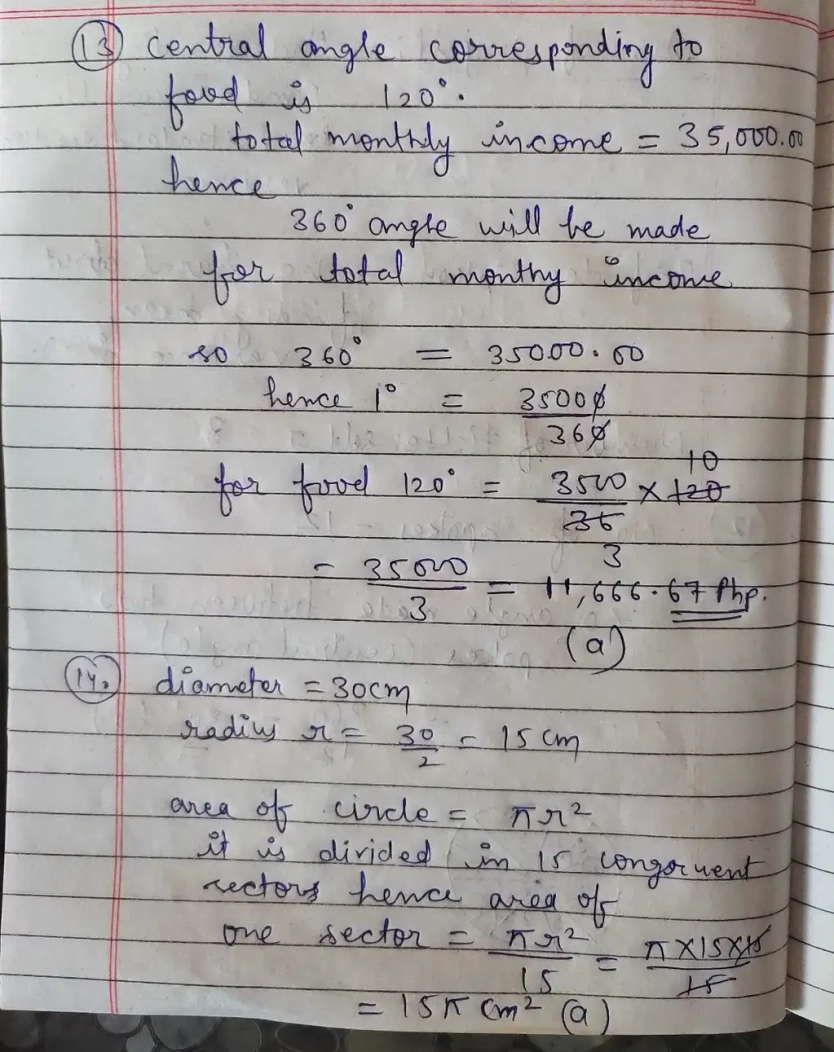 (13) central angle corresponding to
food is 120°.
total monthly income = 35,000.00
hence
360° angle will be made
for total monthy income
so 360° = 35000.00
hence 1° = 35000/360
for food 120° = 3500/36 × 120 10
3
= 35000/3 = 11,666.67 Php.
(a)
(14.) diameter = 30cm
radius r = 30/2 = 15 cm
area of circle = πr²
it is divided in 15 congruent
sectors hence area of
one sector = πr²/15 = π×15×15/15
= 15π cm² (a)